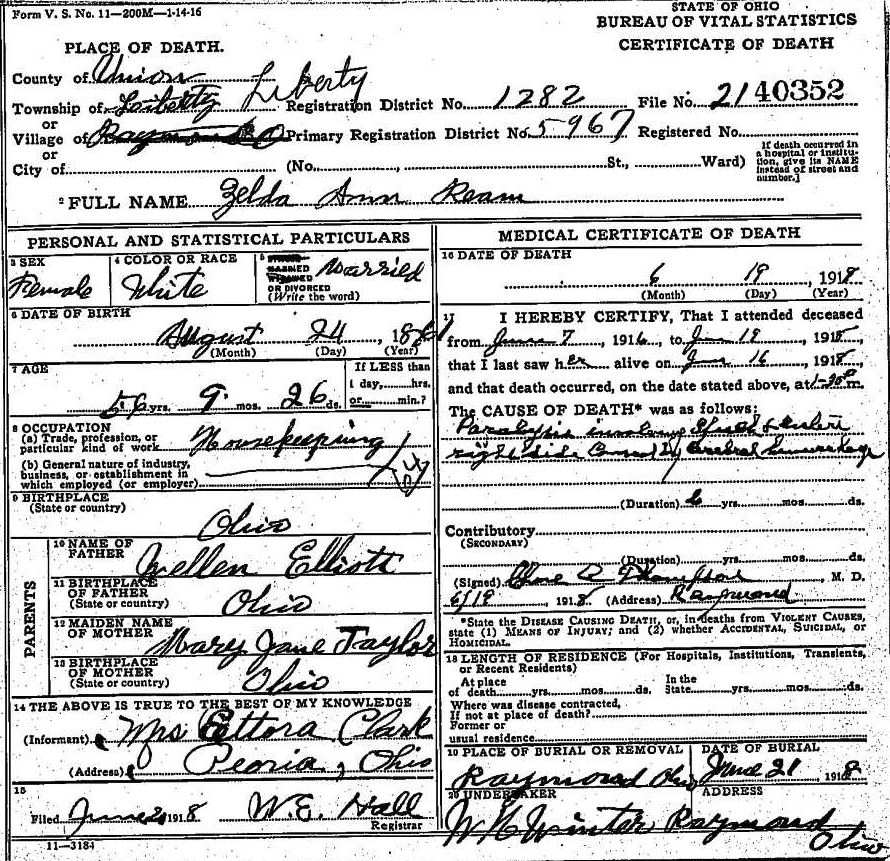 Form V. S. No. 11—200M—1-14-16
STATE OF OHIO
BUREAU OF VITAL STATISTICS
CERTIFICATE OF DEATH
PLACE OF DEATH.
County of Union
Township of Liberty Liberty Registration District No. 1282 File No. 21 40352
or
Village of Raymond O Primary Registration District No. 5967 Registered No.
or
City of (No. St., Ward)
If death occurred in
a hospital or institu-
tion, give its NAME
instead of street and
number.]
2 FULL NAME Zelda Ann Ream
PERSONAL AND STATISTICAL PARTICULARS
3 SEX
Female
4 COLOR OR RACE
White
5 SINGLE
MARRIED
WIDOWED
OR DIVORCED
(Write the word)
Married
6 DATE OF BIRTH
August 24, 1861
(Month) (Day) (Year)
7 AGE
56 yrs. 9 mos. 26 ds.
If LESS than
1 day, hrs.
or min.?
8 OCCUPATION
(a) Trade, profession, or
particular kind of work Housekeeping
(b) General nature of industry,
business, or establishment in
which employed (or employer)
9 BIRTHPLACE
(State or country)
Ohio
PARENTS
10 NAME OF
FATHER
Wellen Elliott
11 BIRTHPLACE
OF FATHER
(State or country)
Ohio
12 MAIDEN NAME
OF MOTHER
Mary Jane Taylor
13 BIRTHPLACE
OF MOTHER
(State or country)
Ohio
14 THE ABOVE IS TRUE TO THE BEST OF MY KNOWLEDGE
(Informant) Mrs Ettora Clark
(Address) Peoria, Ohio
15
Filed June 21 1918 W.E. Hall
Registrar
11—3184
MEDICAL CERTIFICATE OF DEATH
16 DATE OF DEATH
6 19, 1918
(Month) (Day) (Year)
17 I HEREBY CERTIFY, That I attended deceased
from June 7, 1916, to Jun 19, 1918,
that I last saw her alive on Jun 16, 1918,
and that death occurred, on the date stated above, at m.
The CAUSE OF DEATH* was as follows:
Paralysis involving
right side Caused by Cerebral hemorrhage
(Duration) yrs. mos. ds.
Contributory
(SECONDARY)
(Duration) yrs. mos. ds.
(Signed) Thompson, M. D.
6/19, 1918 (Address) Raymond
*State the DISEASE CAUSING DEATH, or, in deaths from VIOLENT CAUSES,
state (1) MEANS OF INJURY; and (2) whether ACCIDENTAL, SUICIDAL, or
HOMICIDAL.
18 LENGTH OF RESIDENCE (For Hospitals, Institutions, Transients,
or Recent Residents)
At place In the
of death yrs. mos. ds. State yrs. mos. ds.
Where was disease contracted,
If not at place of death?
Former or
usual residence
19 PLACE OF BURIAL OR REMOVAL
Raymond Ohio
DATE OF BURIAL
June 21 1918
20 UNDERTAKER
W H Winter
ADDRESS
Raymond
Ohio